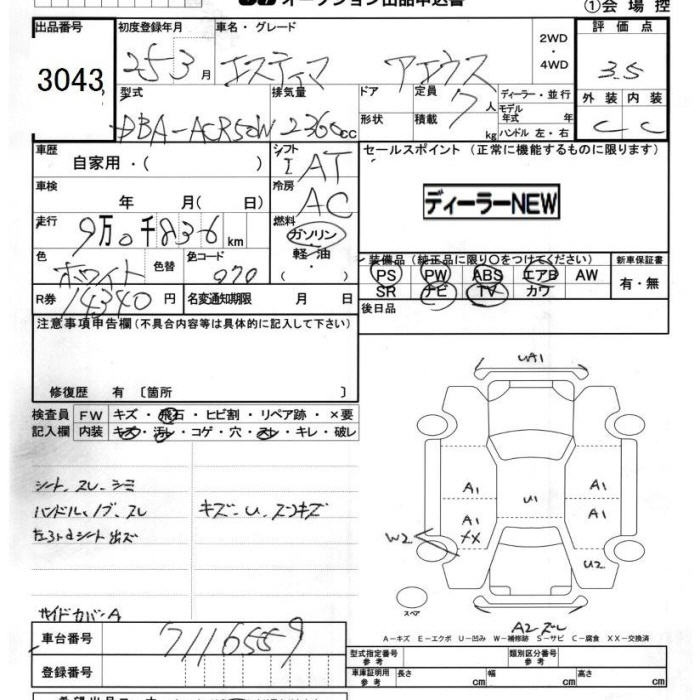 オークション出品申込書
①会場控
出品番号
3043
初度登録年月
25 3 月
車名・グレード
エスティマ アエラス
2WD
・
4WD
評価点
3.5
型式
DBA-ACR50W
排気量
2360 cc
ドア
形状
定員
7人
積載
kg
ディーラー・並行
モデル
年式 年
ハンドル 左・右
外装 内装
C C
車歴
自家用・( )
シフト
I AT
セールスポイント (正常に機能するものに限ります)
ディーラーNEW
車検
年 月( 日)
冷房
AC
走行
9万0千836 km
燃料
ガソリン
・
軽油
( ・ )
色
ホワイト
色替
色コード
070
装備品 (純正品に限り○をつけてください)
PS PW ABS エアB AW
SR ナビ TV カワ
新車保証書
有・無
R券
14340 円
名変通知期限 月 日
後日品
注意事項申告欄(不具合内容等は具体的に記入して下さい)
修復歴 有 〔箇所 〕
検査員
記入欄
FW キズ・飛石・ヒビ割・リペア跡・×要
内装 キズ・汚レ・コゲ・穴・スレ・キレ・破レ
シート、スレ、シミ
ハンドル、ノブ、スレ
キズ・U・スンキズ
サイドカバーA
UA1
A1
A1
U1
A1
XX
A1
W2
U2
スペア
A2 ズレ
A-キズ E-エクボ U-凹み W-補修跡 S-サビ C-腐食 XX-交換済
車台番号
7116559
登録番号
型式指定番号
参考
類別区分番号
参考
車庫証明用
参考
長さ cm
幅 cm
高さ cm